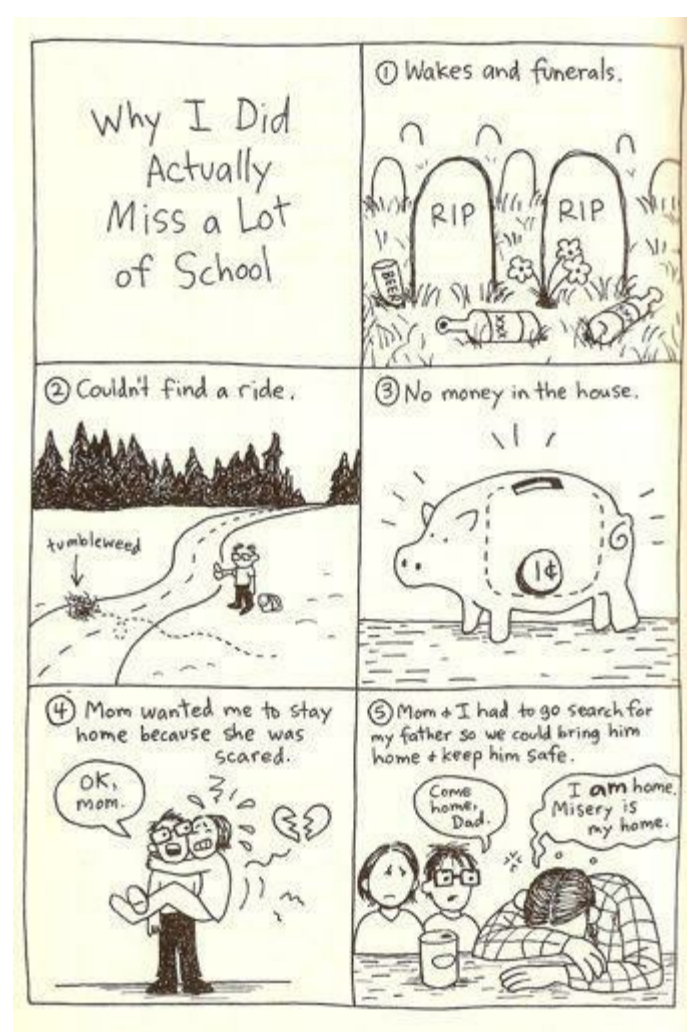 Why I Did
Actually
Miss a Lot
of School
① Wakes and funerals.
RIP
RIP
BEER
XXX
② Couldn't find a ride.
tumbleweed
③ No money in the house.
1¢
④ Mom wanted me to stay
home because she was
scared.
OK,
mom.
⑤ Mom + I had to go search for
my father so we could bring him
home + keep him safe.
Come
home,
Dad.
I am home.
Misery is
my home.